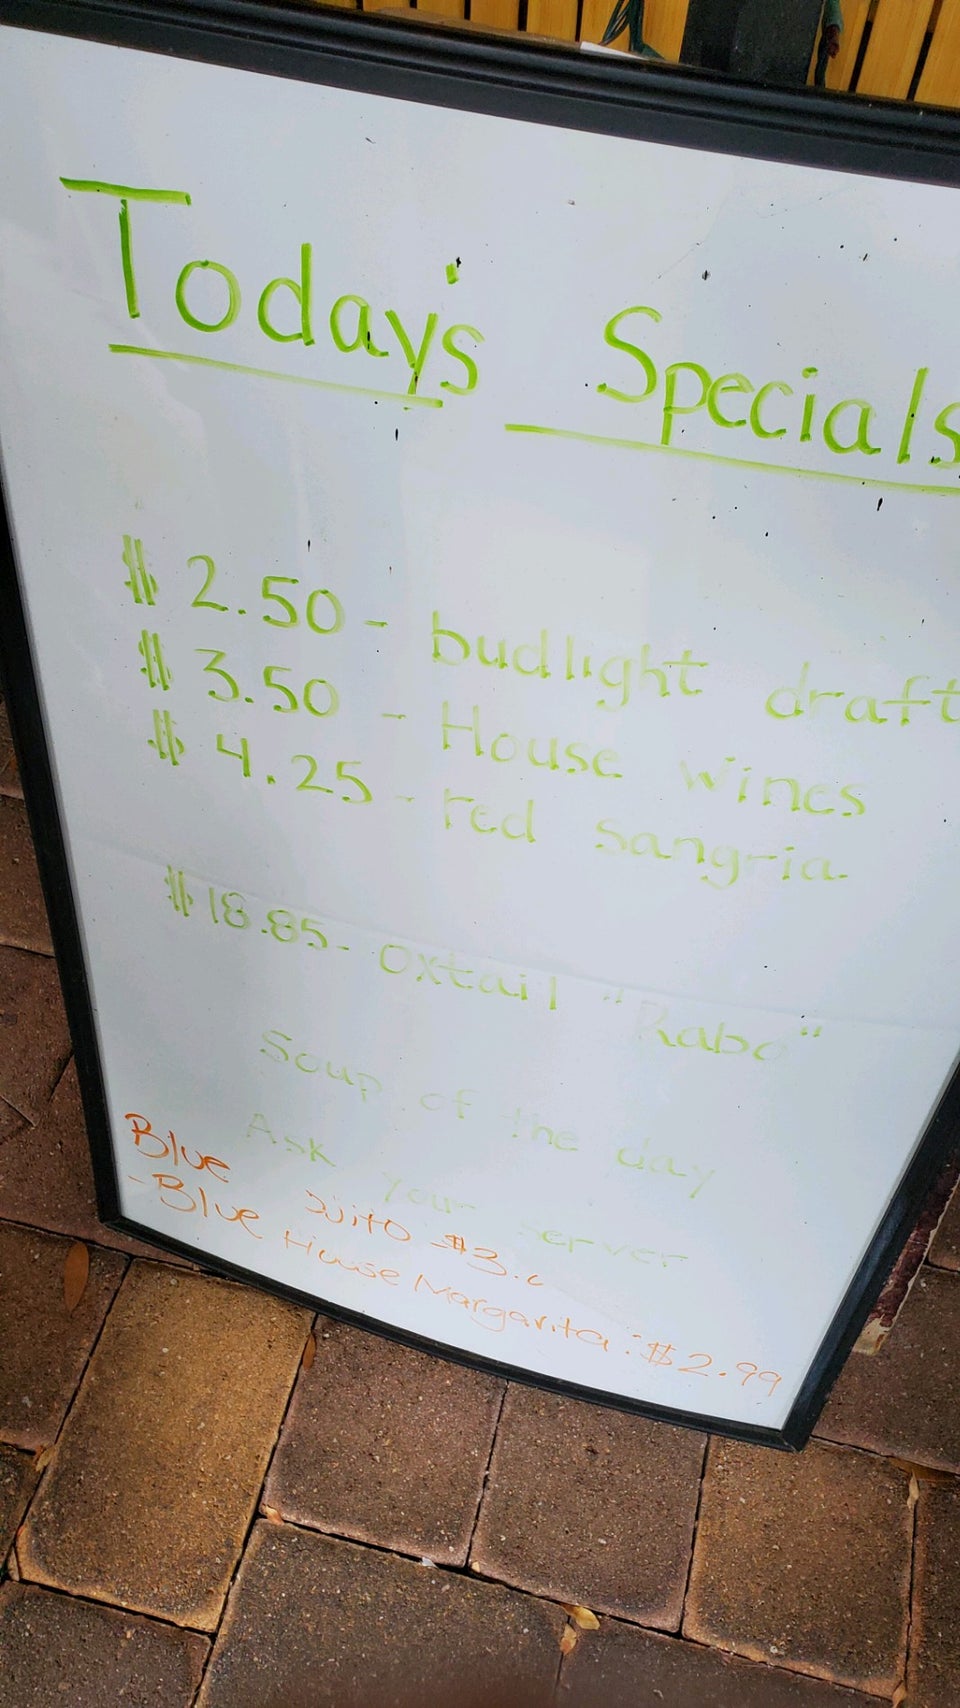 Today's Specials
$ 2.50 - budlight draft
$ 3.50 - House wines
$ 4.25 - red sangria
$ 18.85 - Oxtail "Rabo"
Soup of the day
Ask your server
Blue $3.
- Blue House Margarita : $2.99